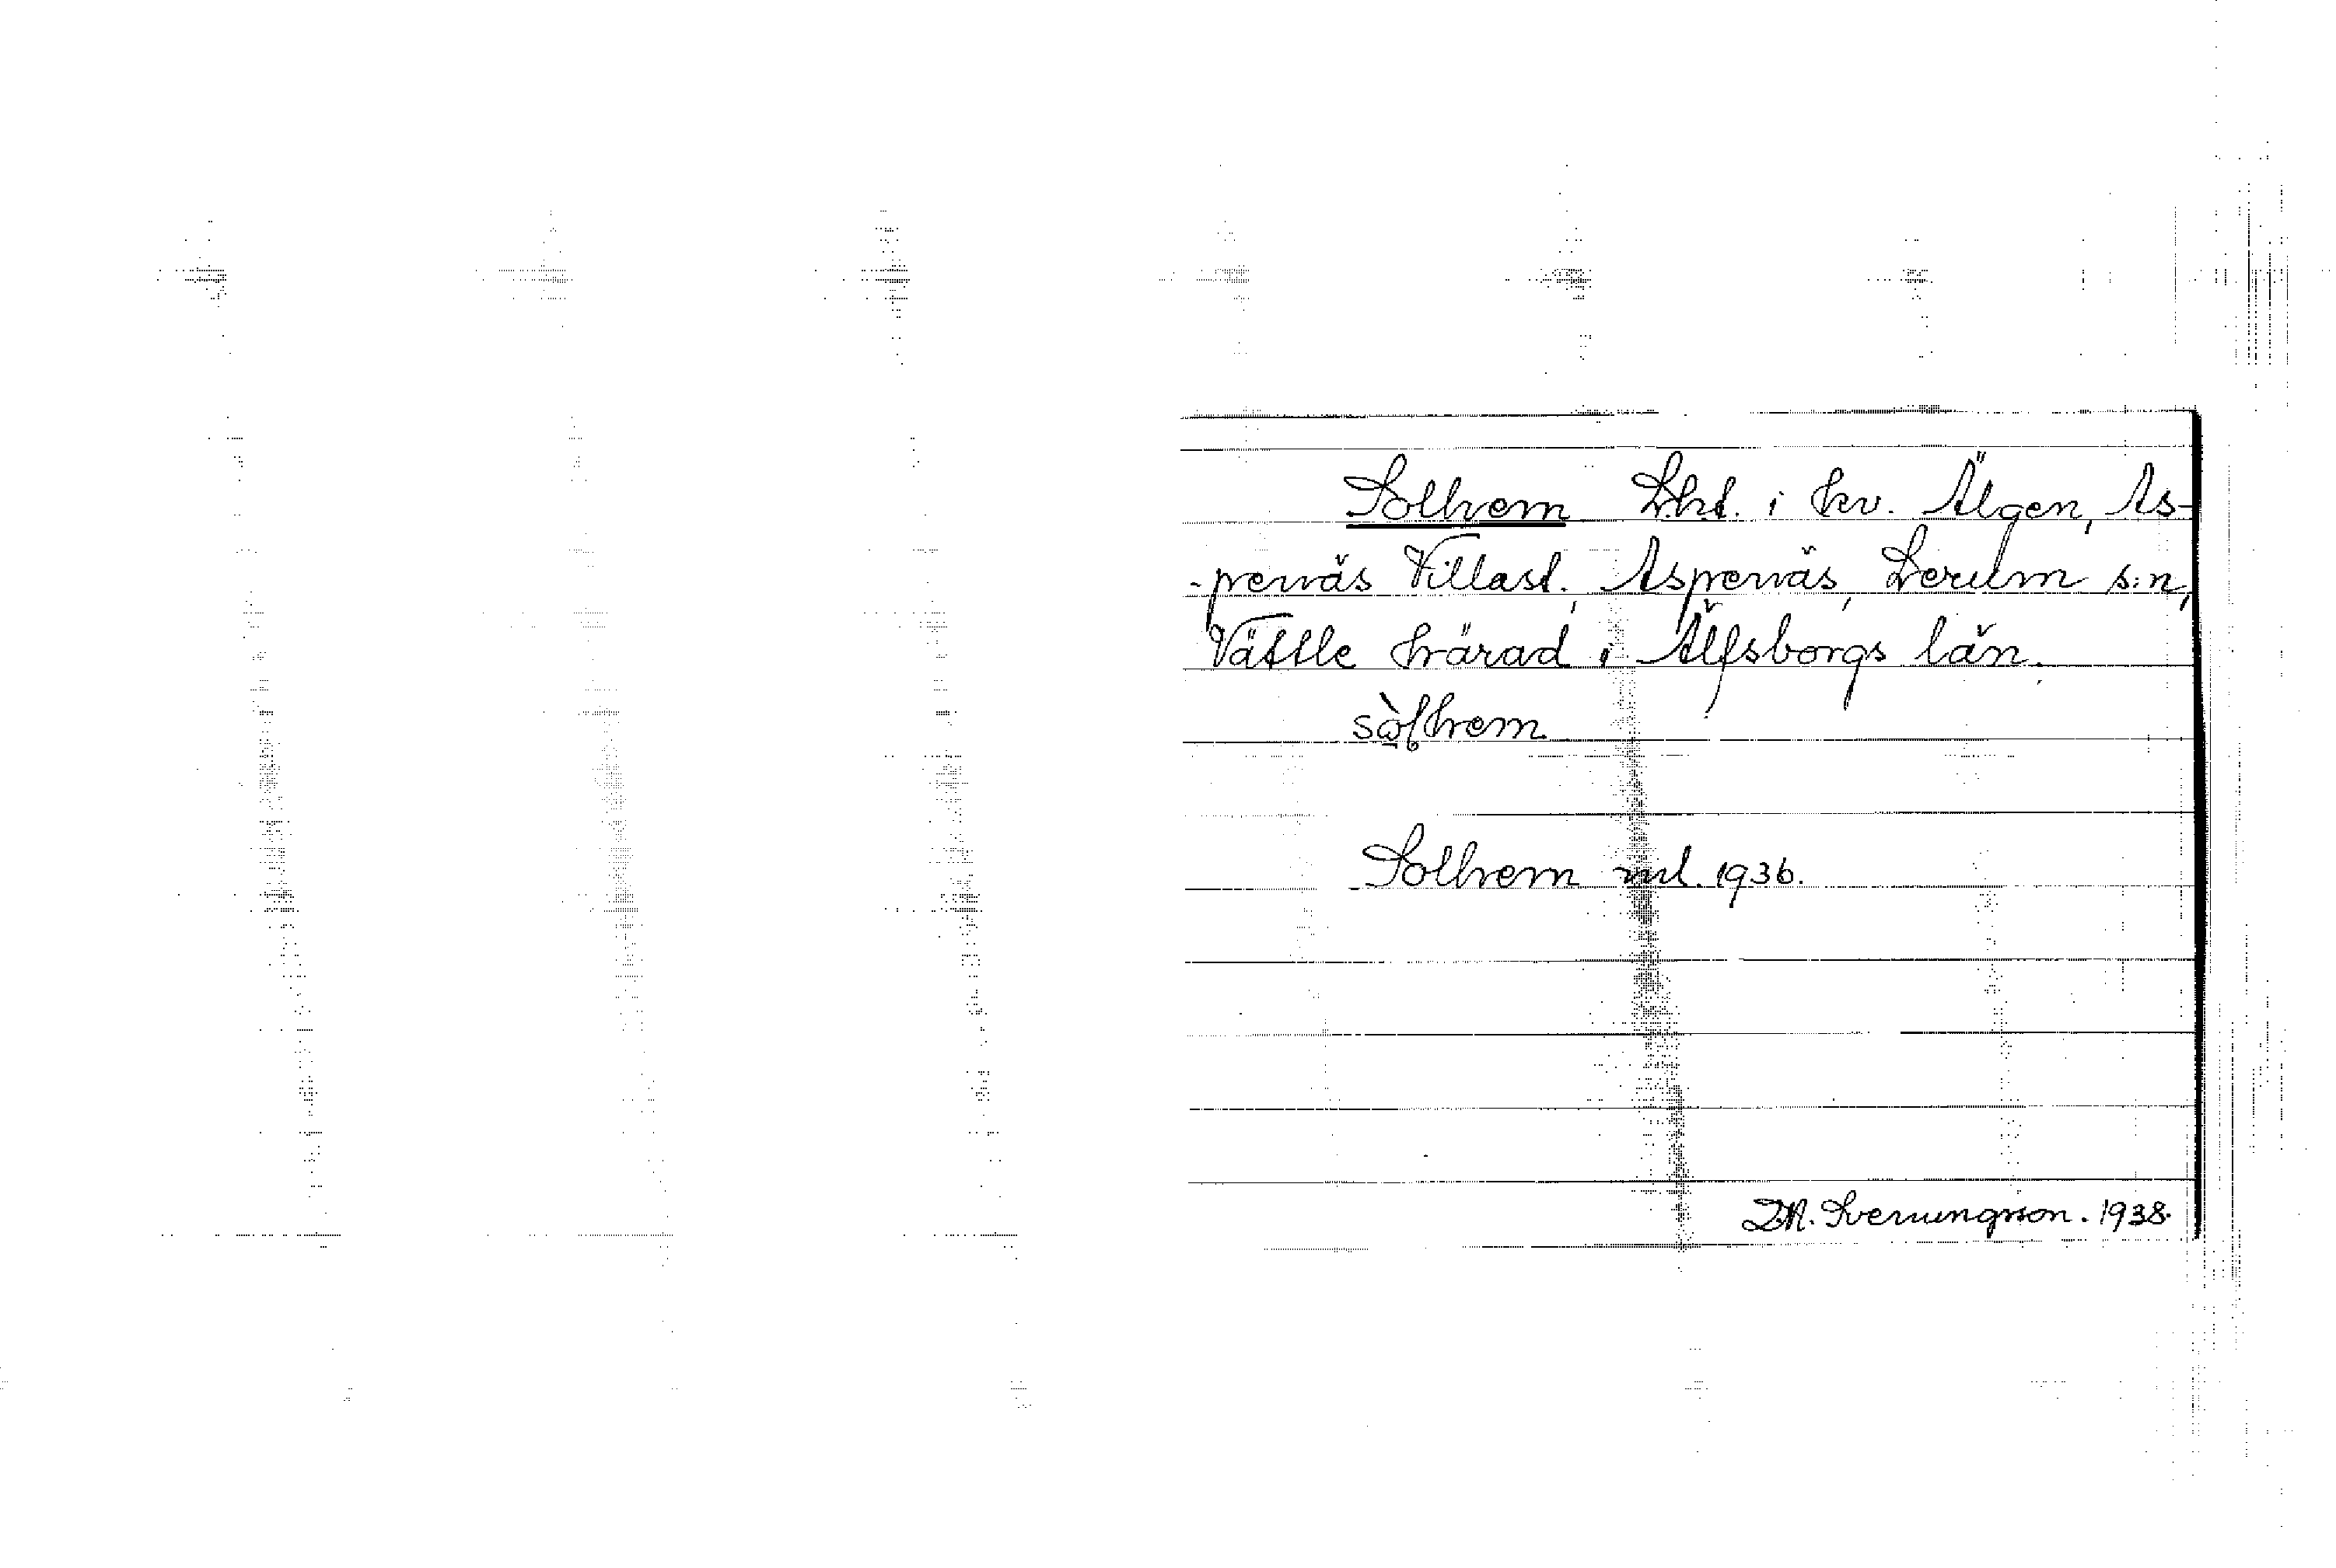 Solhem Lht. i kv. Älgen, As-
-penäs Villast., Aspenäs, Lerum s:n,
Vättle härad i Älfsborgs län.
Solhem ml. 1936.
D.M. Svenungsson. 1938.